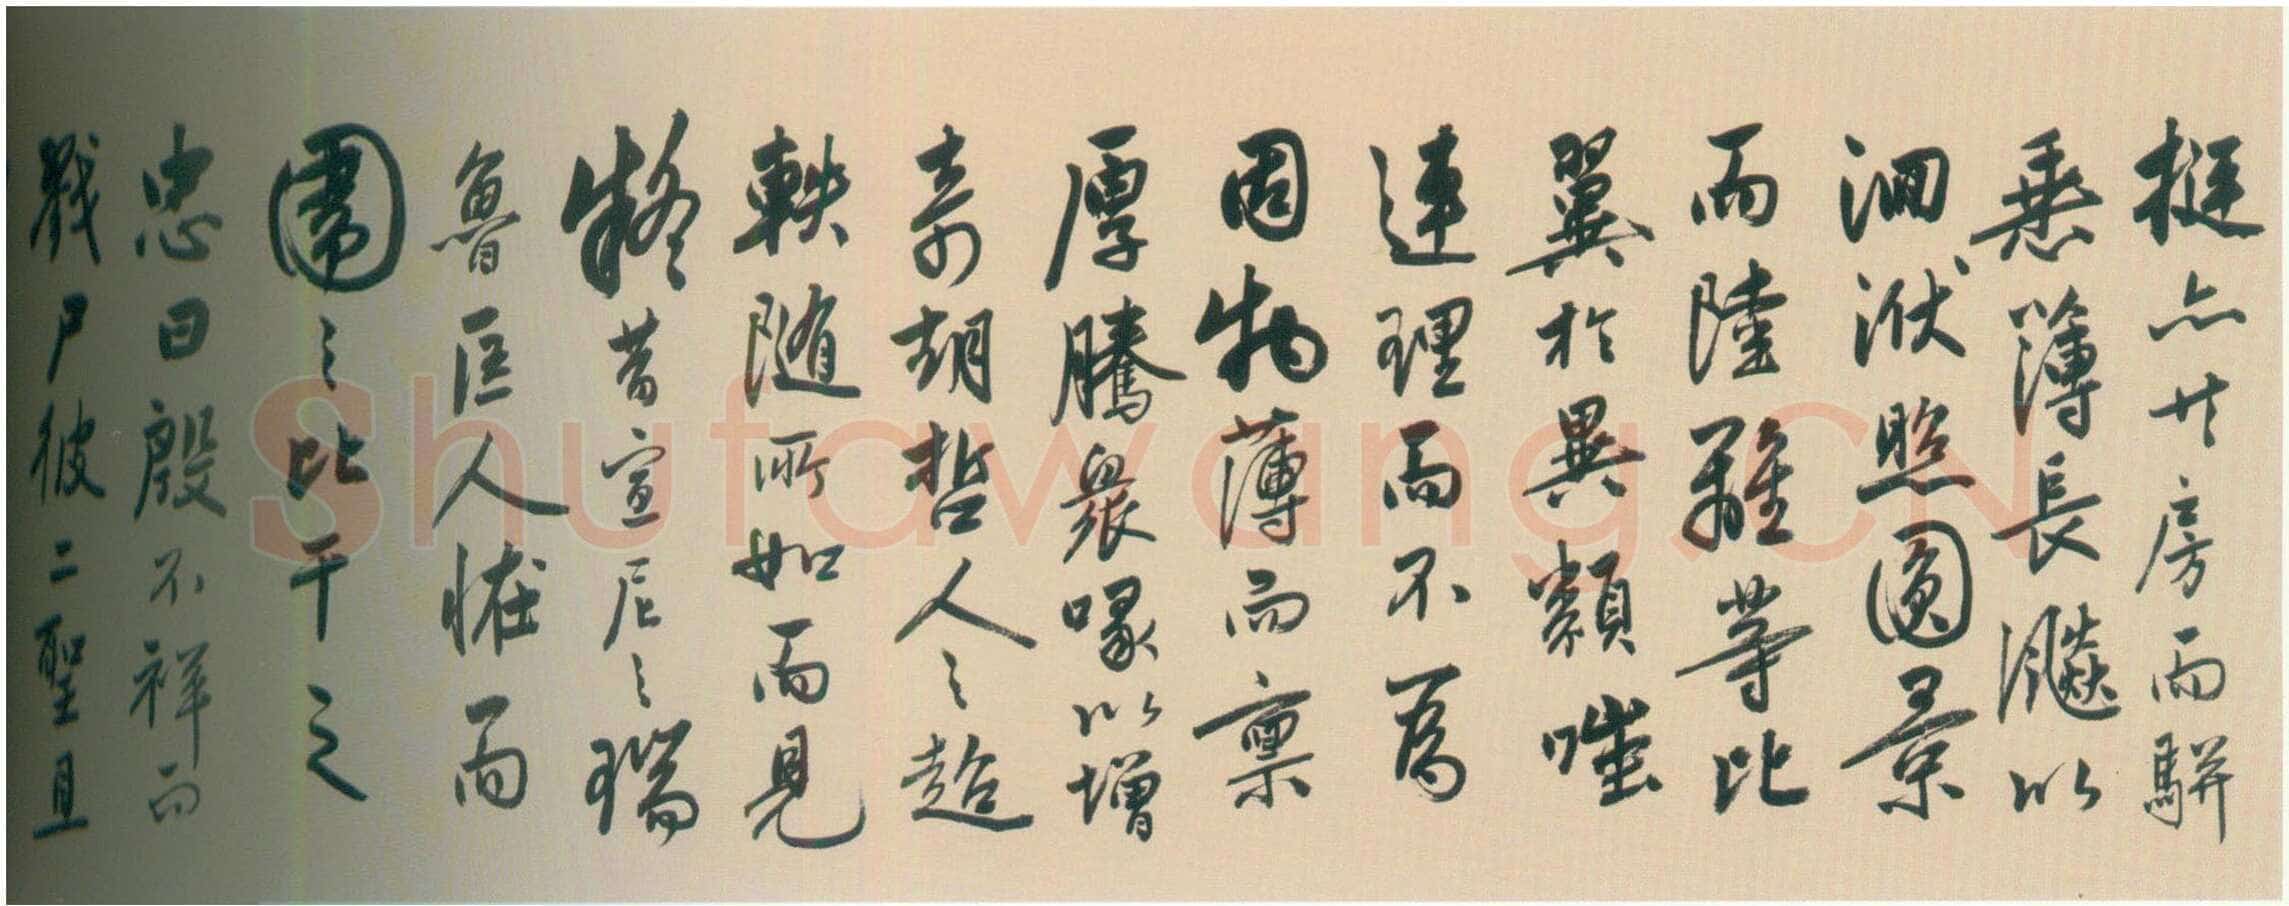 挺亦廿房而駢
乘薄長飈以
泗洑照圓景
而陸離等比
翼於異類嗤
連理而不為
固物薄而稟
厚騰眾喙以增
奇胡哲人之趋
軼随所如而見
擬昔宣尼之瑞
魯匡人怪而
圍之比干之
忠曰殷不祥而
戮尸彼二聖且
Shufawang.CN